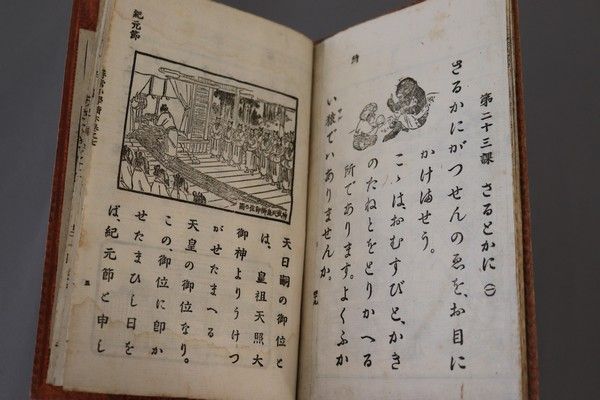 第二十三課 さるとかに (一)
さるかにがつせんのゑを、お目に
かけませう。
こゝは、おむすびと、かき
のたねとをとりかへる
所であります。よくふか
い猿でハありませんか。
紀元節
神武天皇御即位の圖
天日嗣の御位と
は、皇祖天照大
御神よりうけつ
がせたまへる
天皇の御位なり。
この、御位に卽か
せたまひし日を
ば、紀元節と申し
五